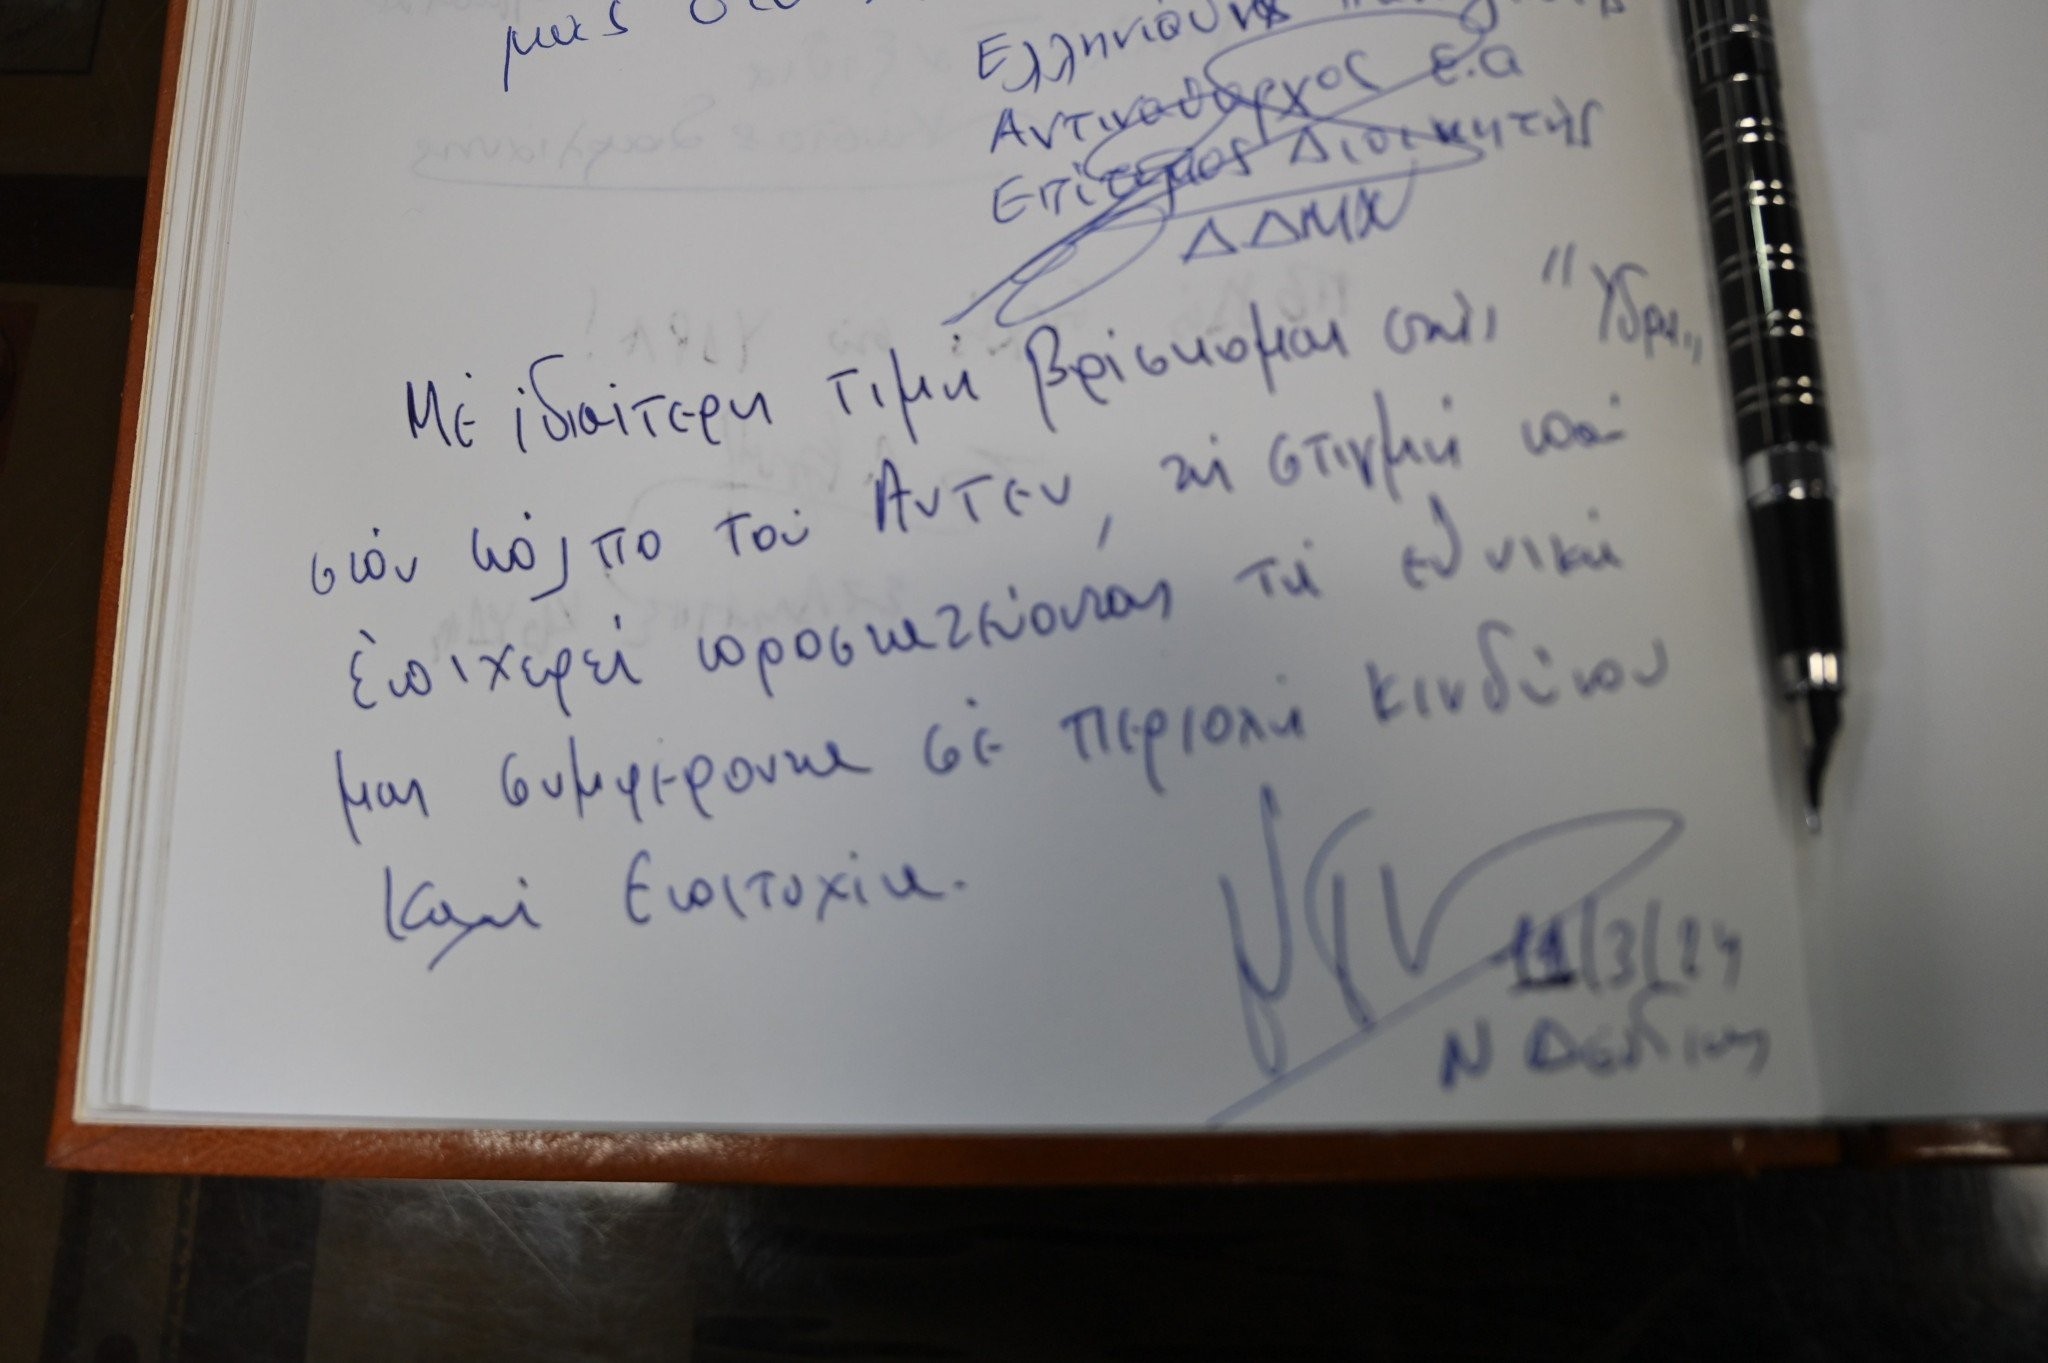 μας
Ελληνισμός
Αντιναύαρχος ε.α
Επίτιμος Διοικητής
ΔΔΜΧ
Μέ ἰδιαίτερη τιμή βρίσκομαι στήν "Ύδρα„
στόν κόλπο τού Αντεν, τή στιγμή πού
ἐπιχειρεί προστατεύοντας τά εθνικά
μας συμφέροντα σέ περιοχή κινδύνου
Καλή Επιτυχία.
11/3/24
Ν Δενδιας